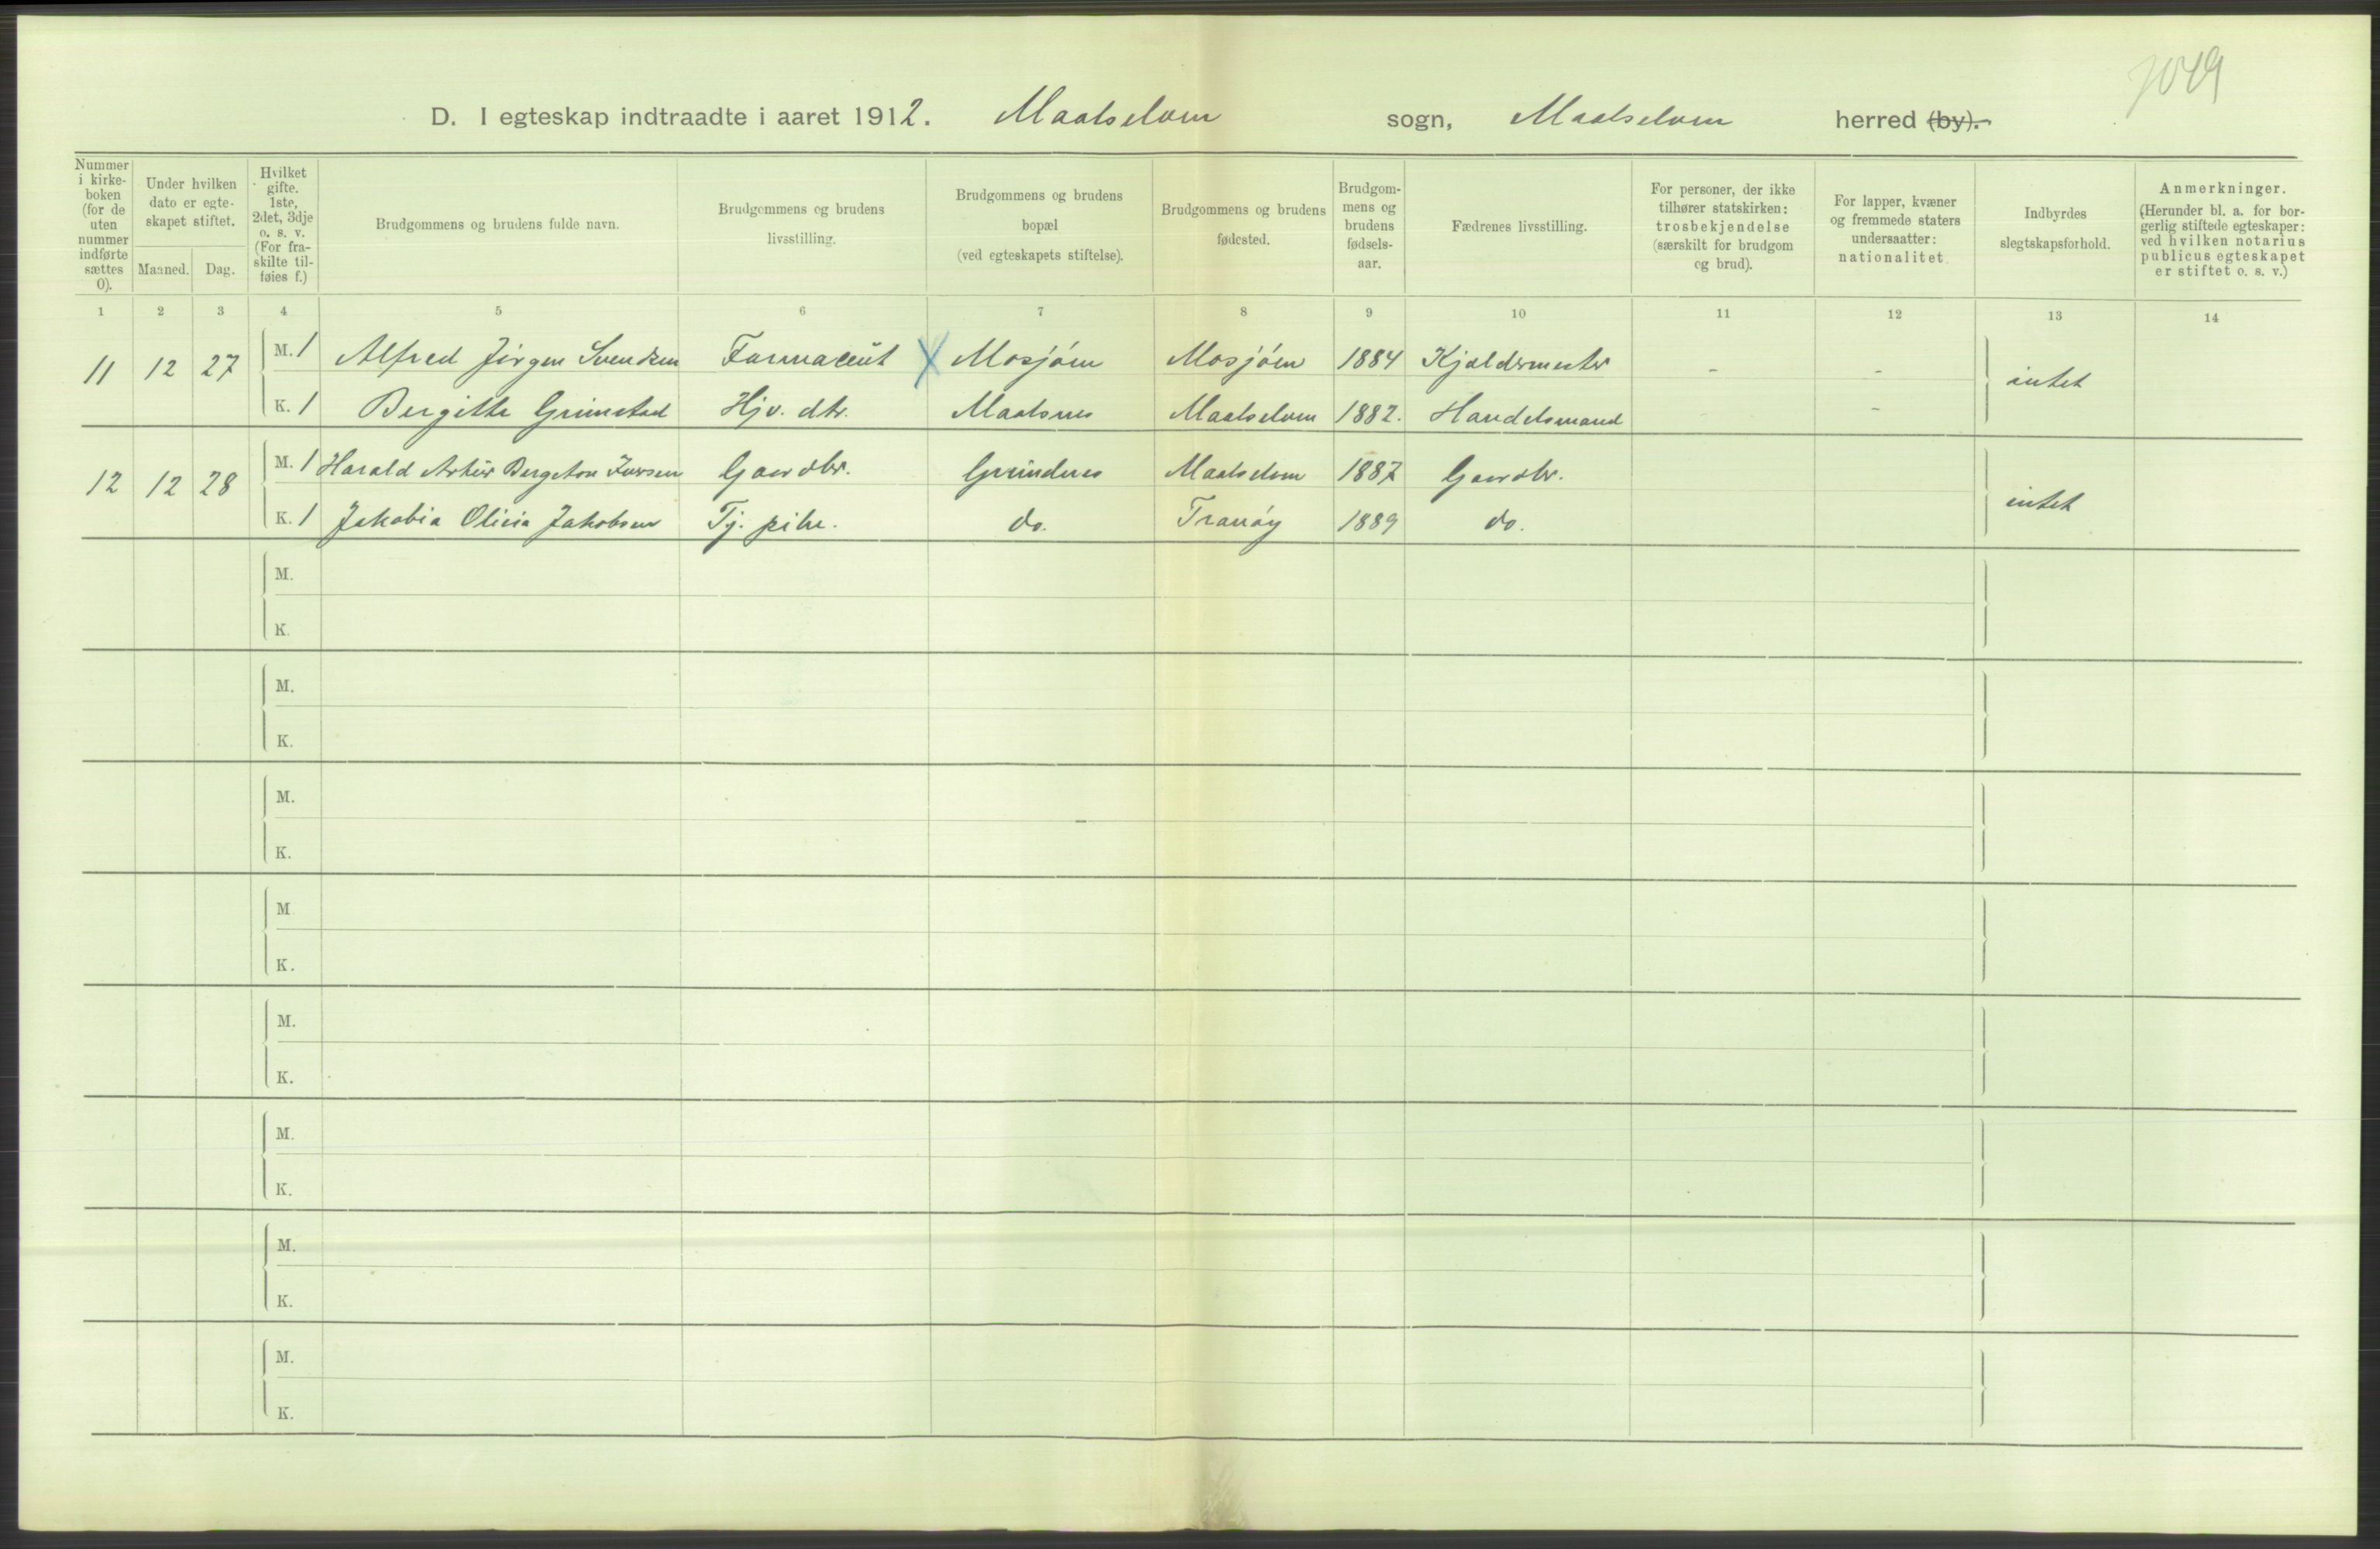 7049
D. I egteskap indtraadte i aaret 1912. Maalselven sogn, Maalselven herred (by).
Nummer i kirke-boken (for de uten nummer indførte sættes 0).
Under hvilken dato er egte-skapet stiftet.
Maaned. Dag.
Hvilket gifte. 1ste, 2det, 3dje o. s. v. (For fra-skilte til-føies f.)
Brudgommens og brudens fulde navn.
Brudgommens og brudens livsstilling.
Brudgommens og brudens bopæl (ved egteskapets stiftelse).
Brudgommens og brudens fødested.
Brudgom-mens og brudens fødsels-aar.
Fædrenes livsstilling.
For personer, der ikke tilhører statskirken: trosbekjendelse (særskilt for brudgom og brud).
For lapper, kvæner og fremmede staters undersaatter: nationalitet
Indbyrdes slegtskapsforhold.
Anmerkninger. (Herunder bl. a. for bor-gerlig stiftede egteskaper: ved hvilken notarius publicus egteskapet er stiftet o. s. v.)
1 2 3 4 5 6 7 8 9 10 11 12 13 14
11 12 27 M. 1 Alfred Jørgen Svendsen Farmaceut X Mosjøen Mosjøen 1884 Kjøldermester - - intet
K. 1 Bergitte Grimstad Hjv. dtr. Maalsnes Maalselven 1882. Handelsmand -
12 12 28 M. 1 Harald Artur Bergeton Iversen Gaardbr. Grundnes Maalselven 1887 Gaardbr. intet
K. 1 Jakobia Olivia Jakobsen Tj. pike. do. Tranøy 1889 do.
M.
K.
M.
K.
M.
K.
M
K.
M.
K.
M.
K.
M.
K.
M.
K.